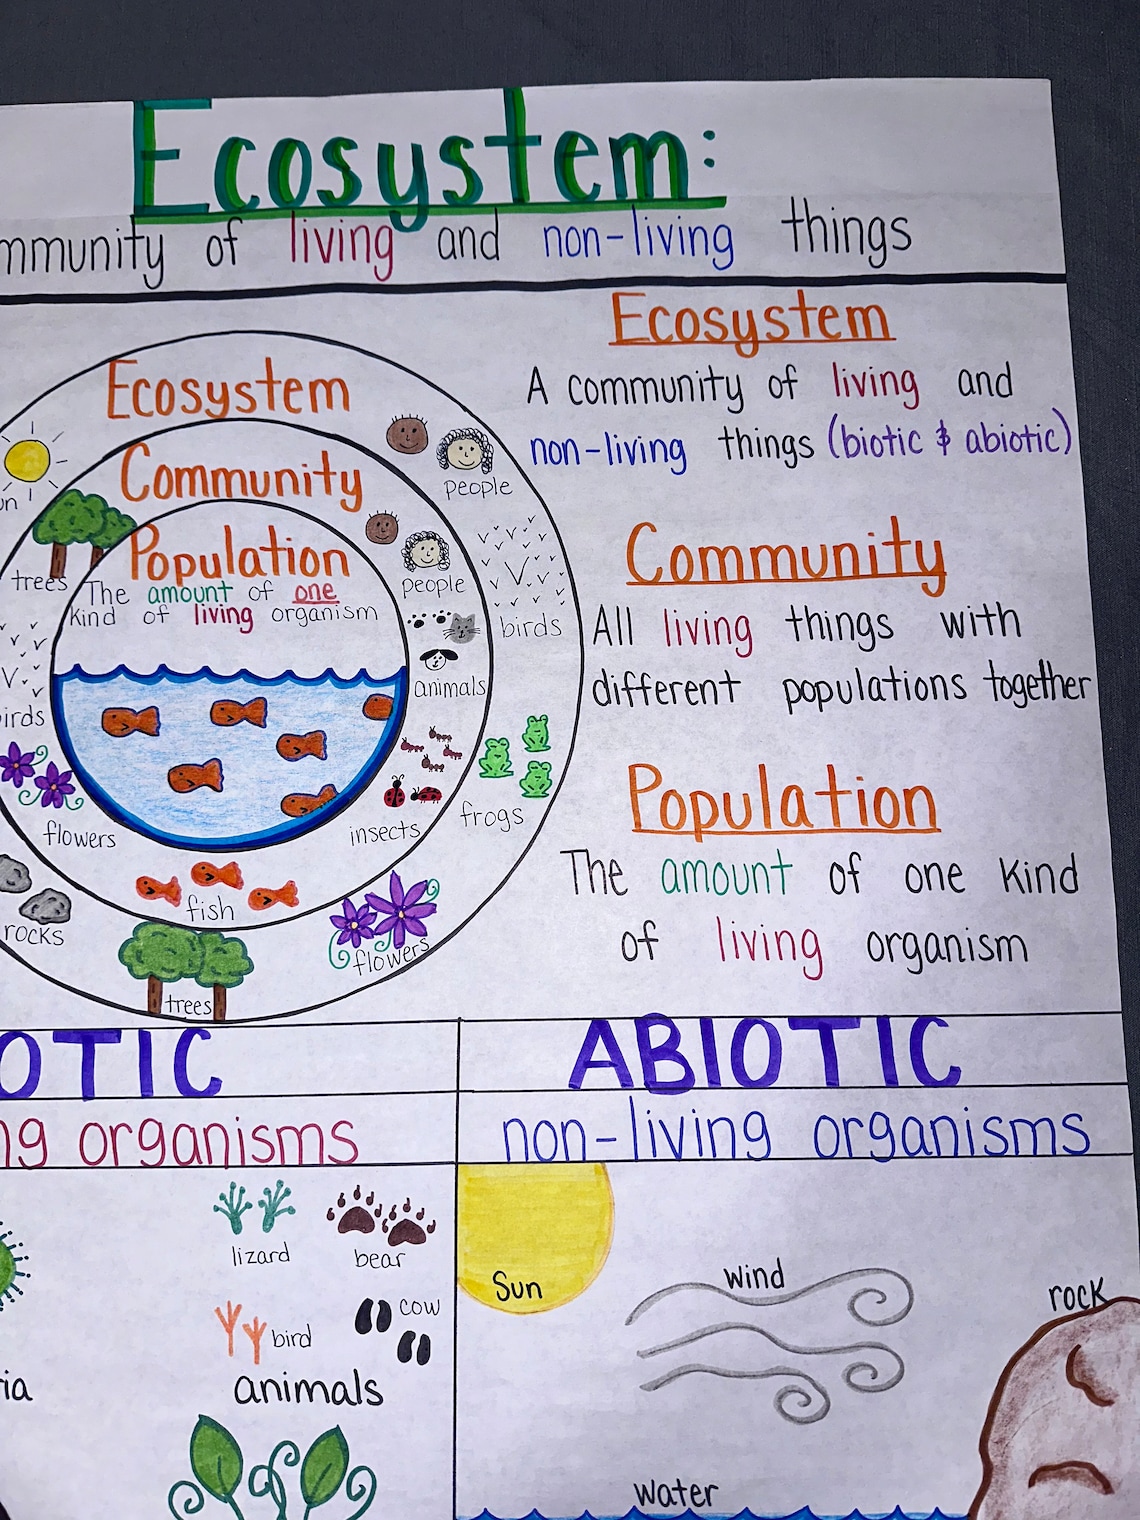 Ecosystem:
mmunity of living and non-living things
Ecosystem
A community of living and
non-living things (biotic & abiotic)
Community
All living things with
different populations together
Population
The amount of one kind
of living organism
Ecosystem
Community
Population
The amount of one
kind of living organism
un
trees
irds
flowers
rocks
trees
fish
flowers
insects
frogs
animals
birds
people
people
OTIC
ng organisms
lizard
bear
bird
cow
animals
ria
ABIOTIC
non-living organisms
Sun
wind
rock
water